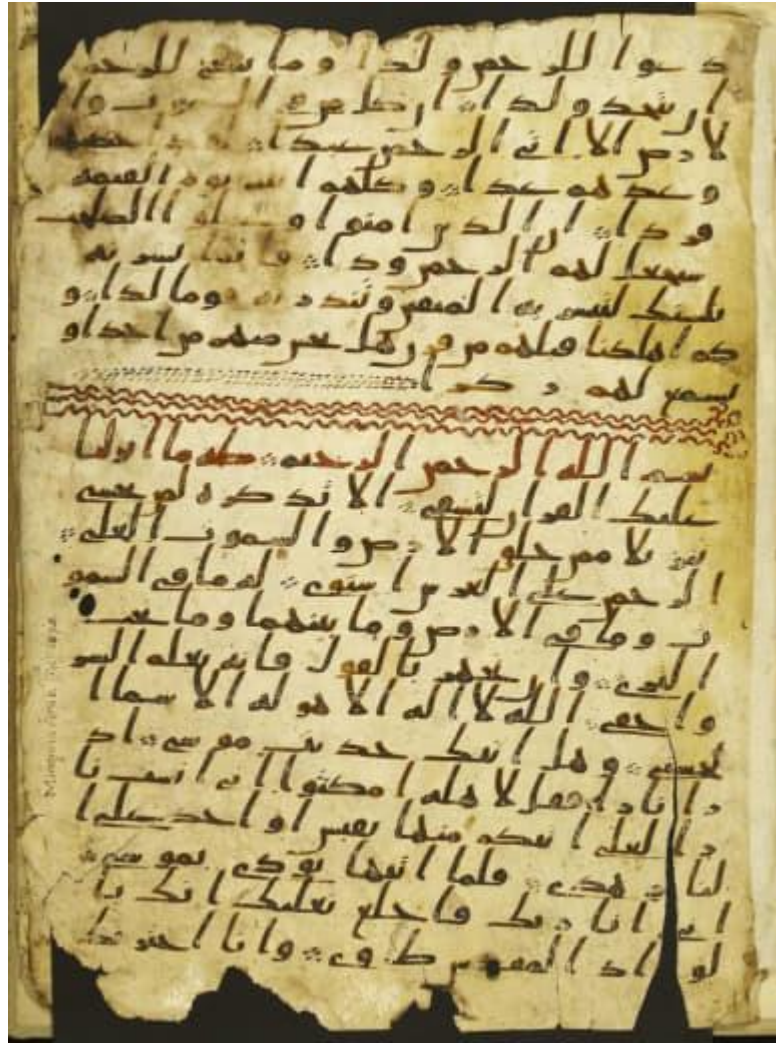 دعوا للرحمن ولدا وما ينبغي للرحمن
ان يتخذ ولدا ان كل من في السموت وا
لارض الا اتي الرحمن عبدا لقد احصهم
وعدهم عدا وكلهم اتيه يوم القيمة
فردا ان الذين امنوا وعملوا الصلحت
سيجعل لهم الرحمن ودا فانما يسرنه
بلسنك لتبشر به المتقين وتنذر به قوما لدا و
كم اهلكنا قبلهم من قرن هل تحس منهم من احد او
تسمع لهم ركزا
بسم الله الرحمن الرحيم طه ما انزلنا
عليك القران لتشقى الا تذكرة لمن يخشى
تنزيلا ممن خلق الارض والسموت العلى
الرحمن على العرش استوى له ما في السمو
ت وما في الارض وما بينهما وما تحت
الثرى وان تجهر بالقول فانه يعلم السر
واخفى الله لا اله الا هو له الاسما ا
لحسنى وهل اتيك حديث موسى اذ
را نارا فقل لاهله امكثوا اني انست نا
را لعلي اتيكم منها بقبس او اجد على ا
لنار هدى فلما اتيها نودي يموسى
اني انا ربك فاخلع نعليك انك با
لواد المقدس طوى وانا اخترتك